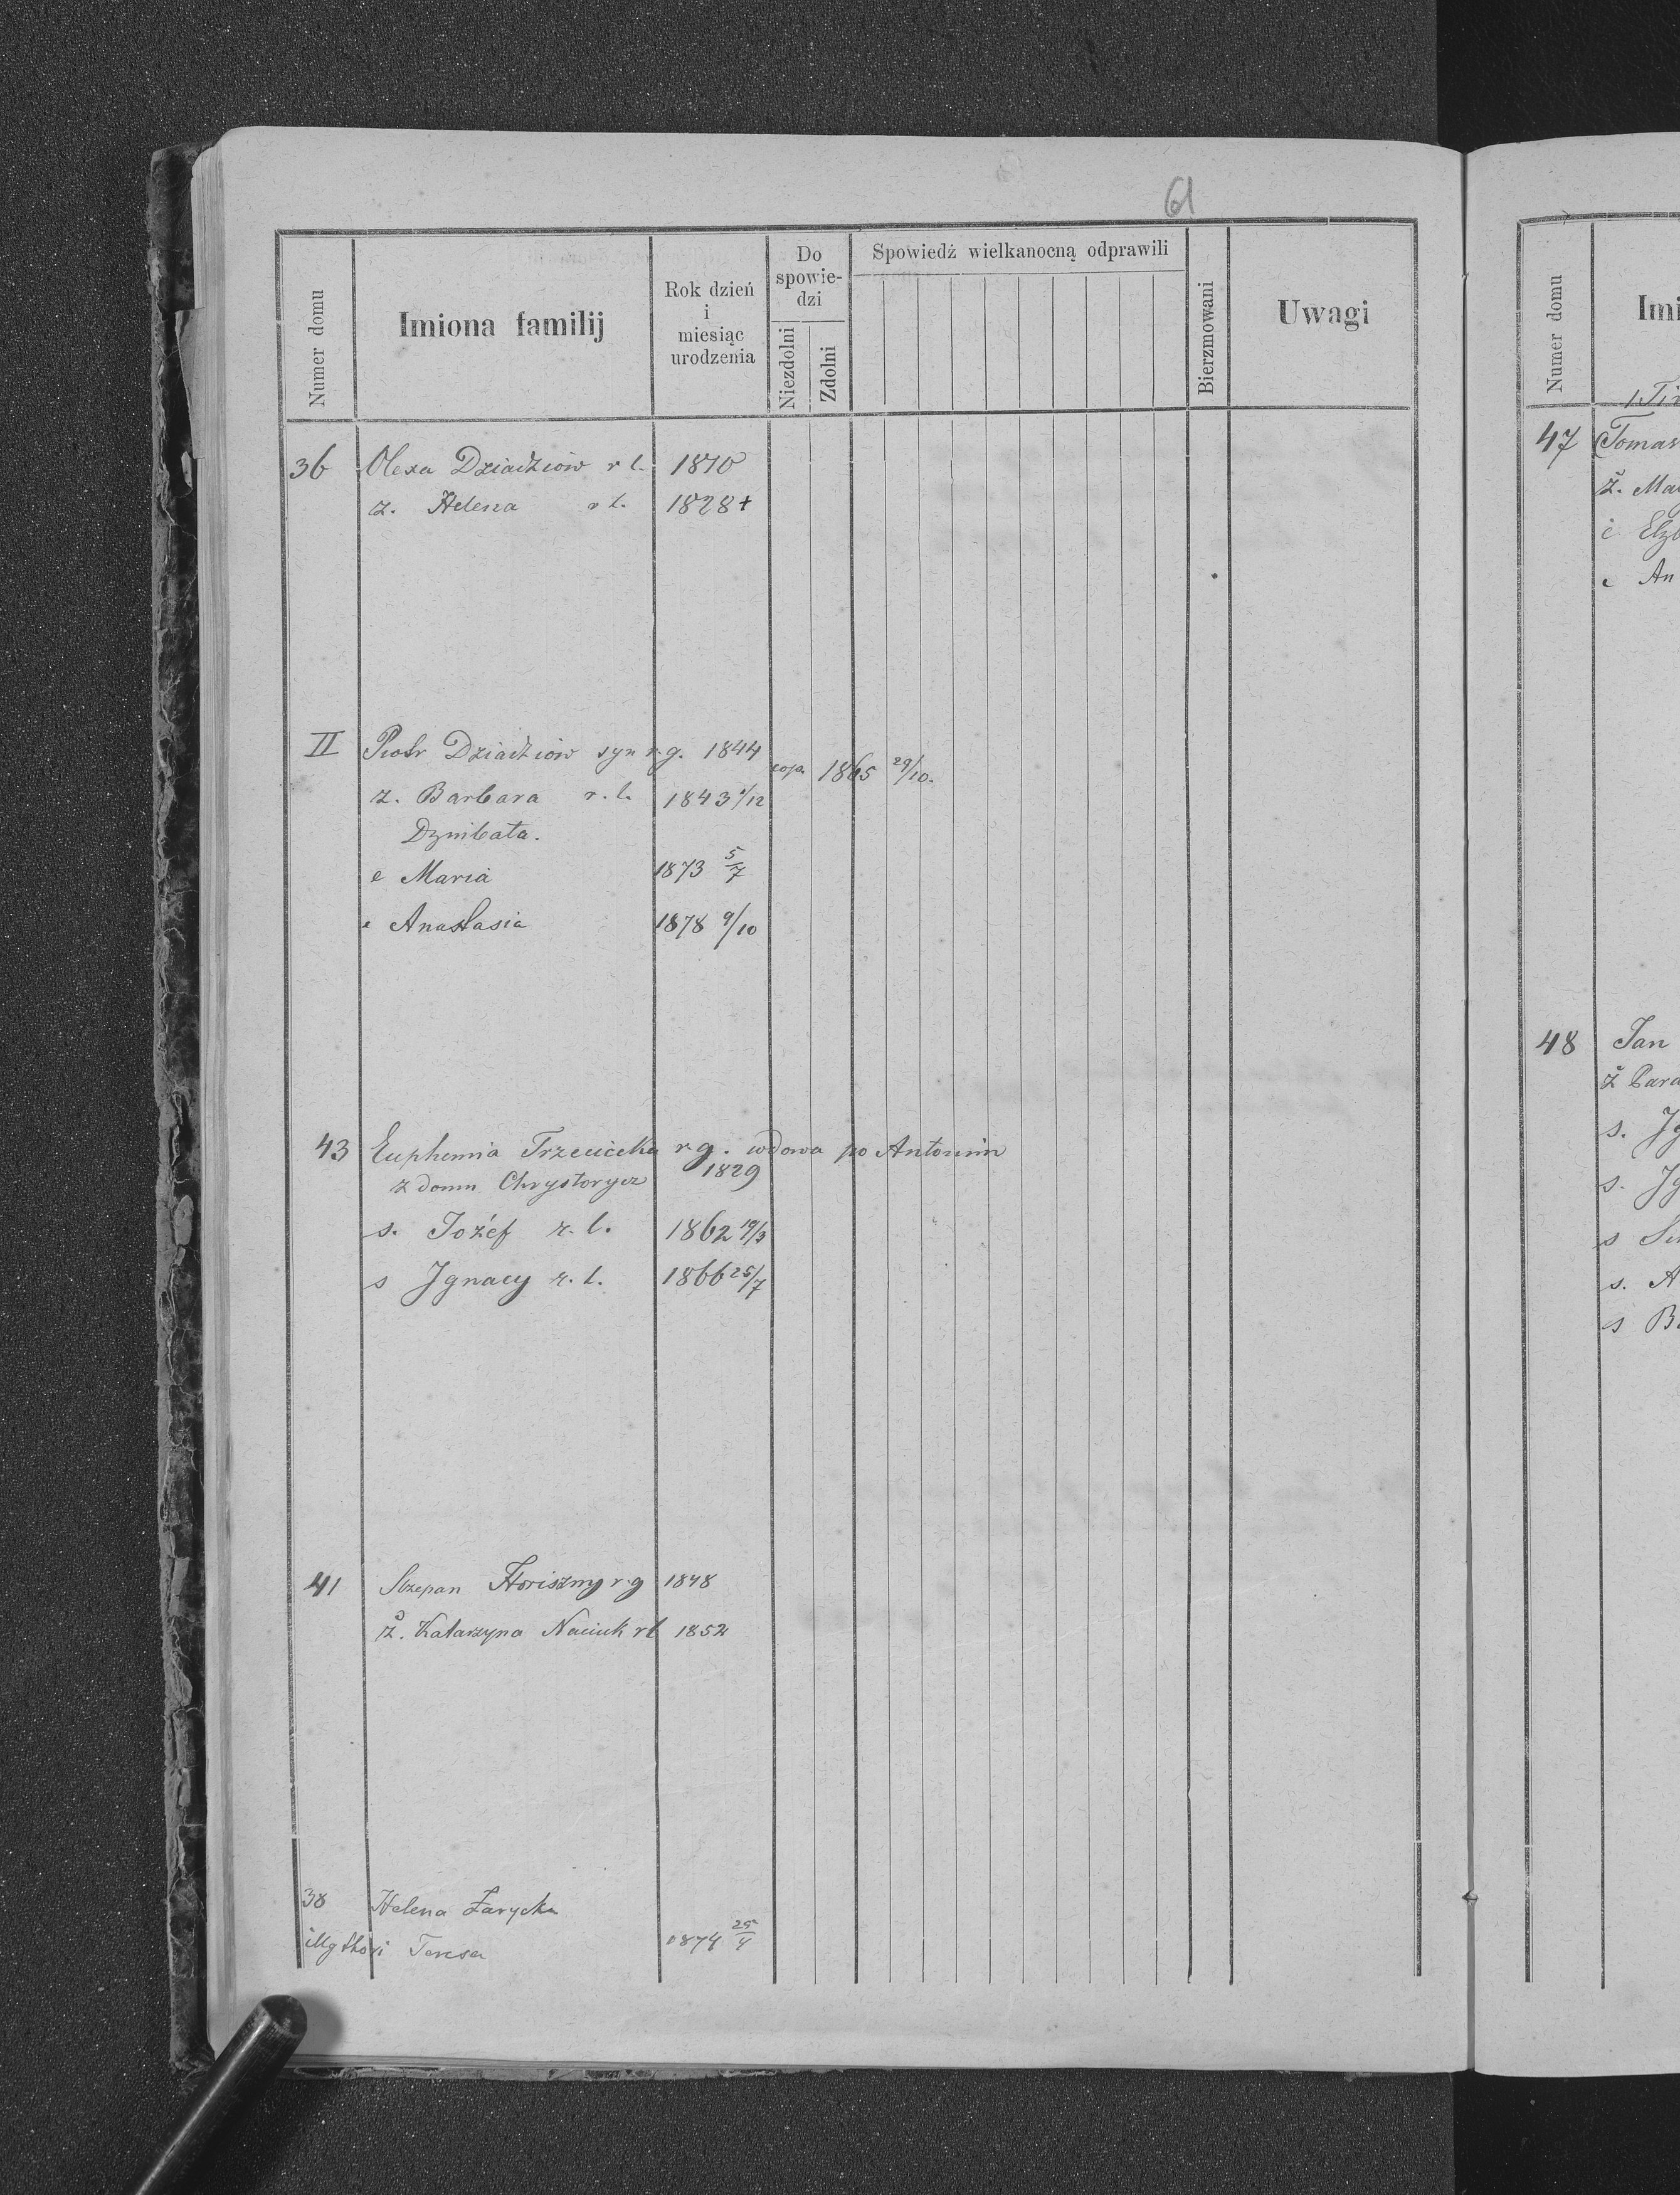 61
Numer domu
Imiona familij
Rok dzień i miesiąc urodzenia
Do spowiedzi
Niezdolni
Zdolni
Spowiedź wielkanocną odprawili
Bierzmowani
Uwagi
36 Olexa Dziadziów r l. 1810
z. Helena r l. 1828 +
II Piotr Dziadziów syn r. g. 1844
cop. 1865 29/10.
z. Barbara r. l. 1843 /12
Maria 1873 5/7
Anastasia 1878 9/10
43 Euphemia Trzecicka r. g. wdowa po Antonim
z domu Chrystorycz 1829
s. Jozéf r. l. 1862 19/3
s Jgnacy r. l. 1866 25/7
41 Szepan Horiszny r. g 1848
ż. Katarzyna Naciuk rl 1852
38 Helena Zarycka
Teresa 1874 25/4
Numer domu
Imi
47 Tomas
ż. Ma
c Elzb
c An
48 Jan
ż Para
s. Jg
s. Jg
s
s. A
s B